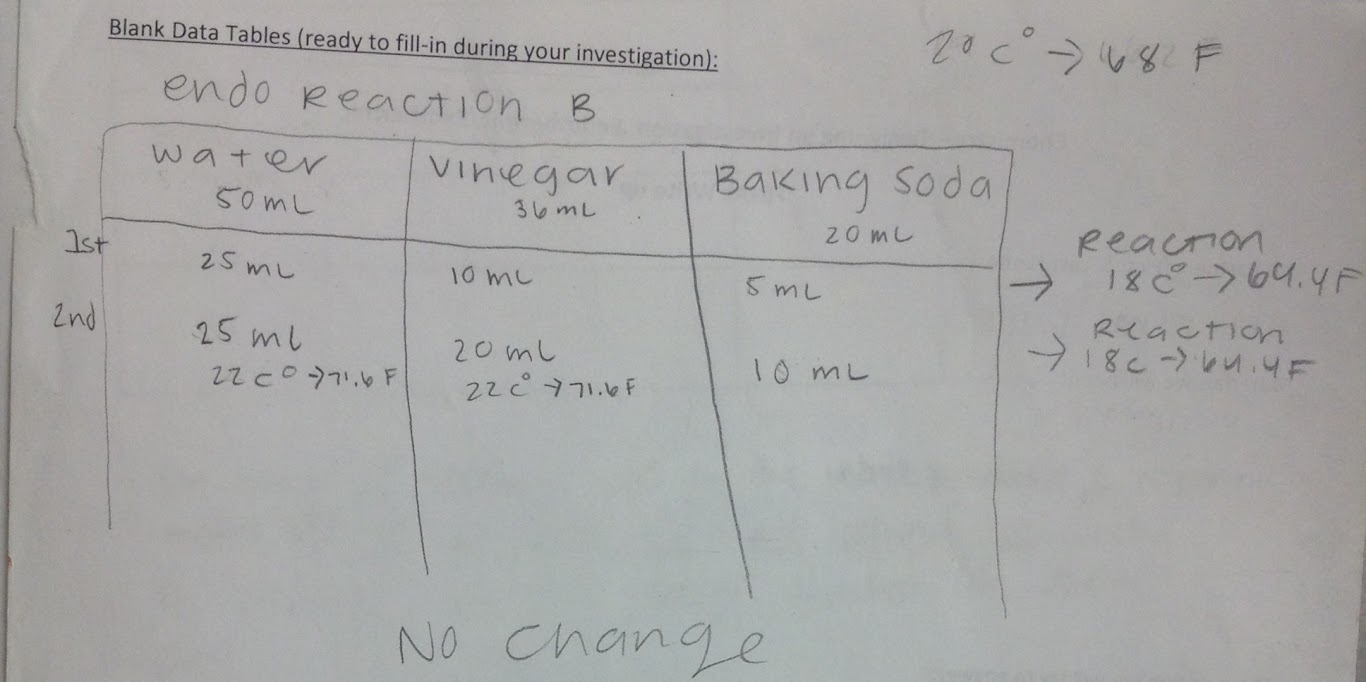 Blank Data Tables (ready to fill-in during your investigation):
20 C° → 68 F
endo Reaction B
Water
50 mL
Vinegar
36 mL
Baking Soda
20 mL
1st
25 mL
10 mL
5 mL
→ Reaction
18 C° → 64.4 F
2nd
25 mL
22 C° → 71.6 F
20 mL
22 C° → 71.6 F
10 mL
→ Reaction
18 C → 64.4 F
No change